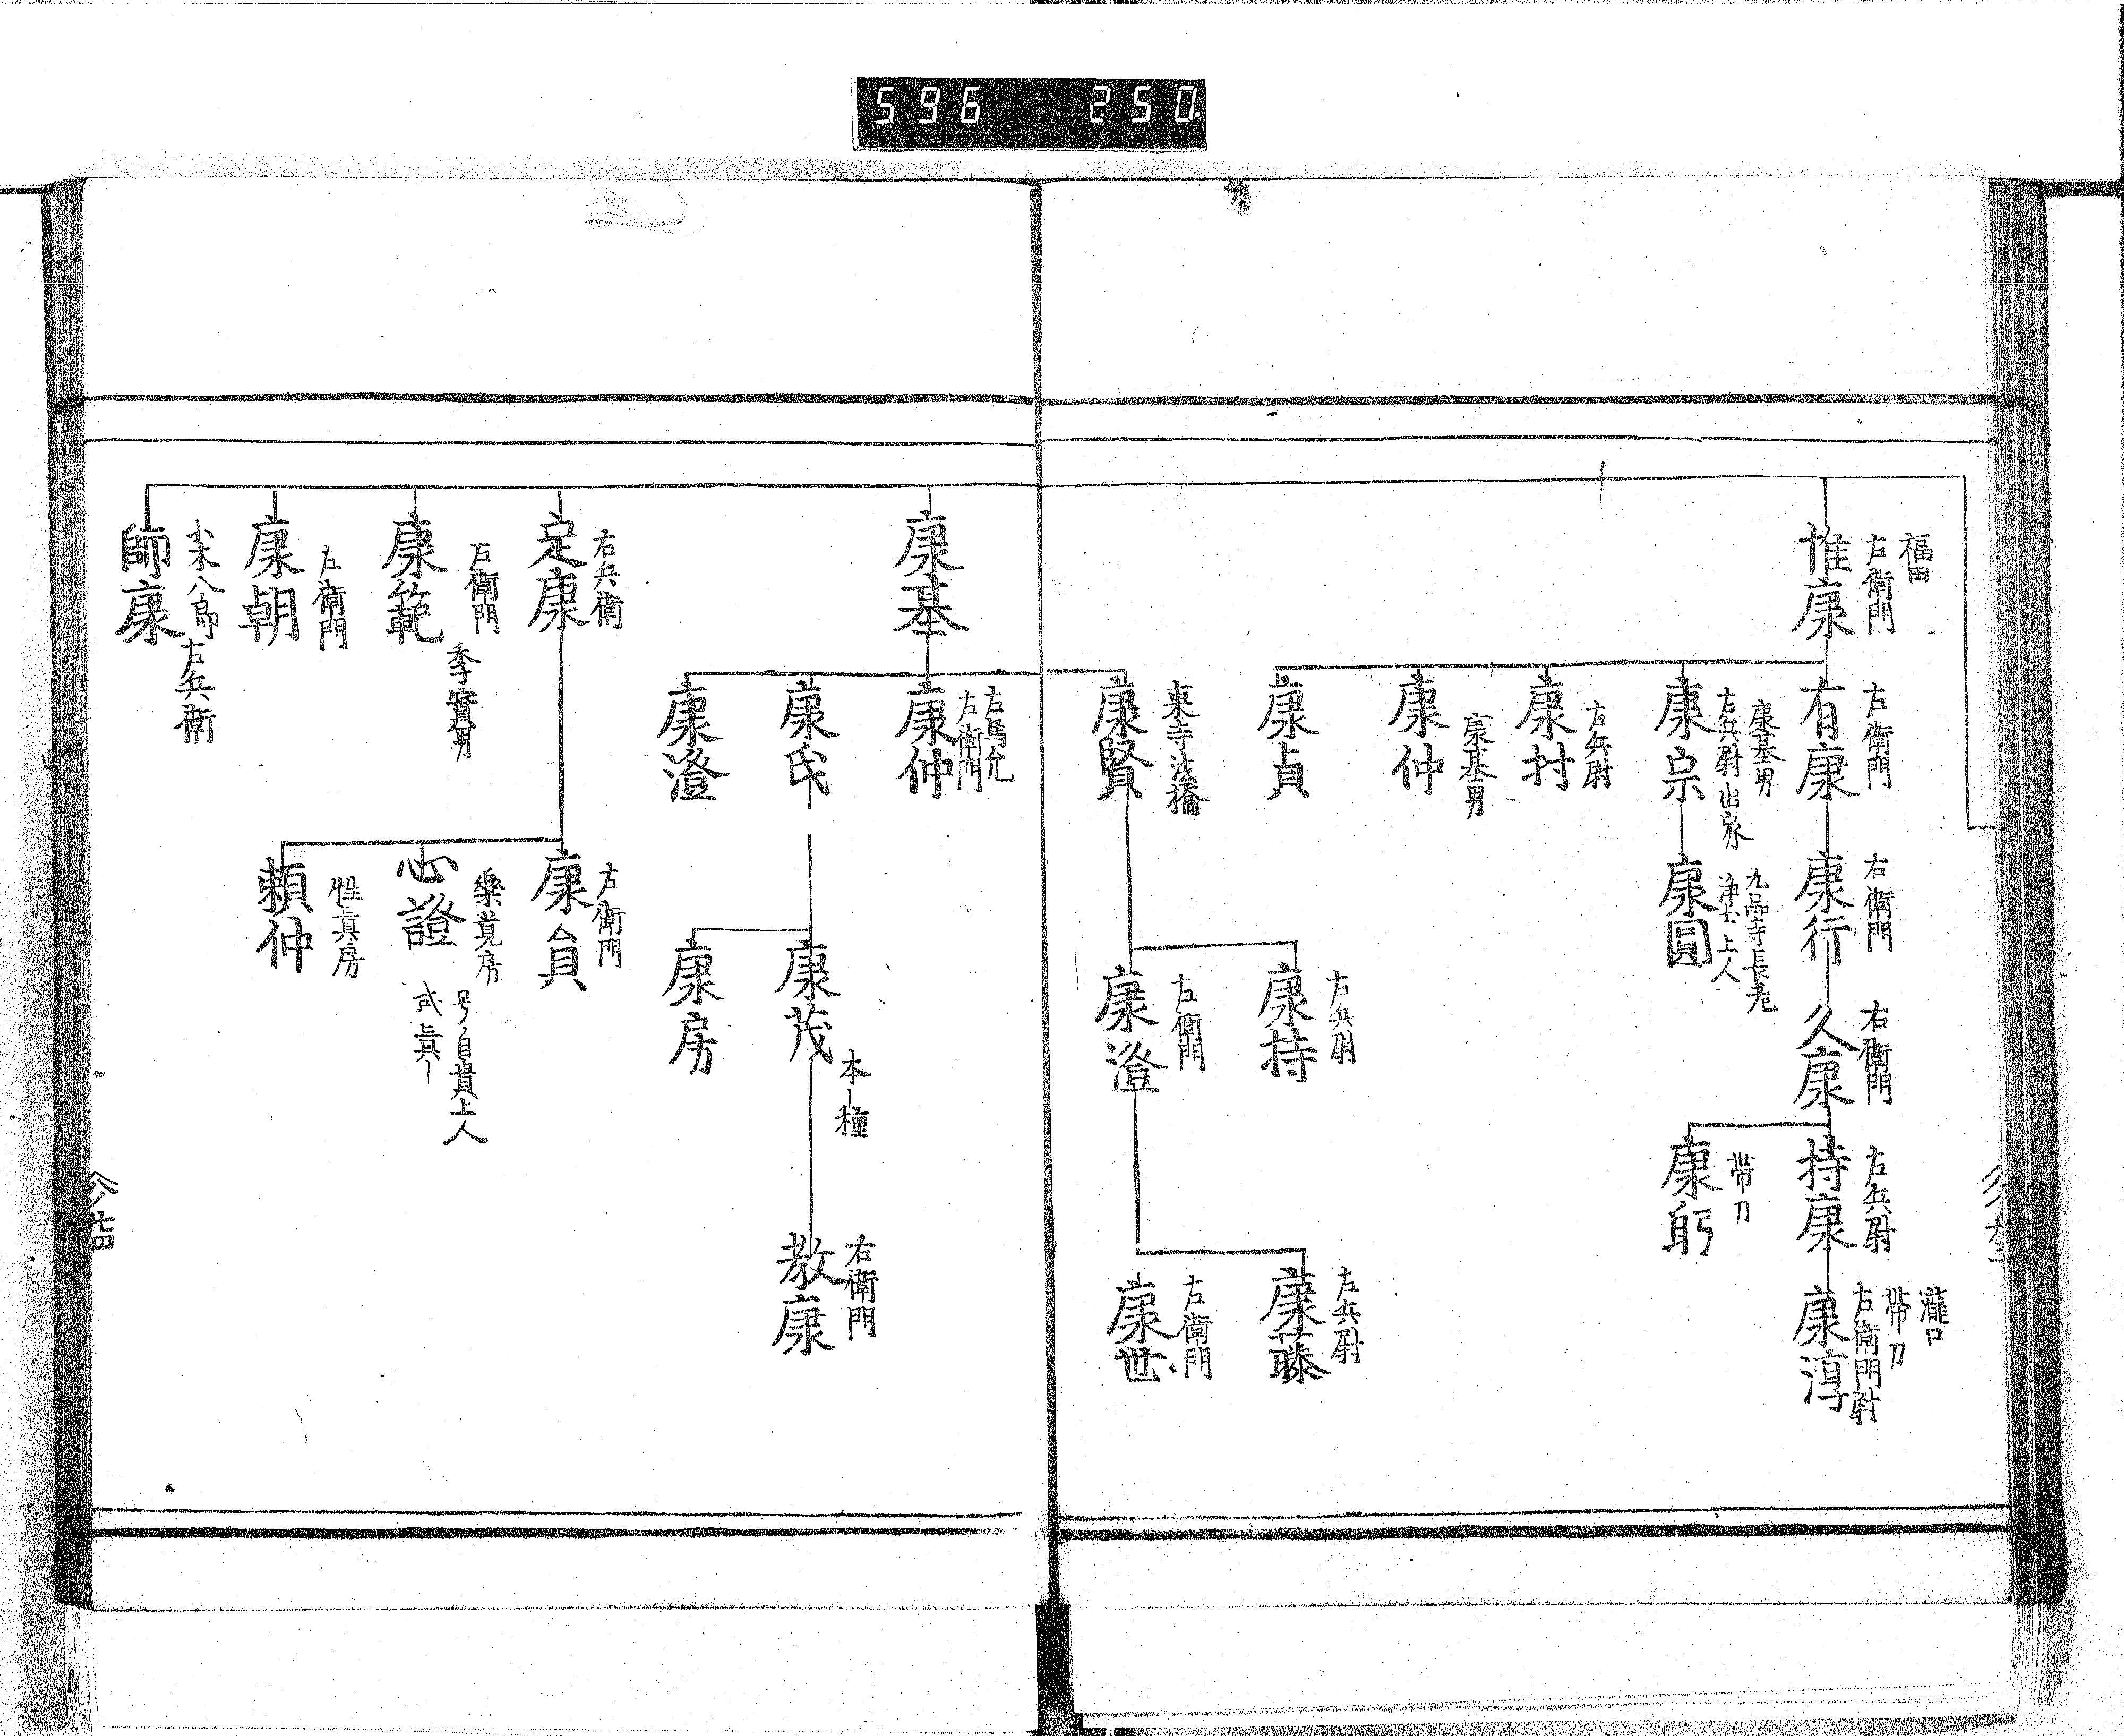 596 250
福田
左衛門
惟康
左衛門
有康
右衛門
康行
右衛門
久康
左兵尉
持康
瀧口
帯刀
左衛門尉
康淳
帯刀
康躬
康基男
左兵尉 出家
康宗
九品寺長老
浄土上人
康圓
右兵尉
康村
康基男
康仲
康貞
東寺法橋
康賢
左兵尉
康持
左衛門
康澄
左兵尉
康藤
左衛門
康世
康基
左馬允
左衛門
康仲
康氏
本ー種
康茂
右衛門
教康
康房
康澄
右兵衛
定康
左衛門
康員
樂覚房
心證
号自貴上人
或眞ー
性眞房
頼仲
左衛門
季實男
康範
左衛門
康朝
小木八郎
左兵衛
師康